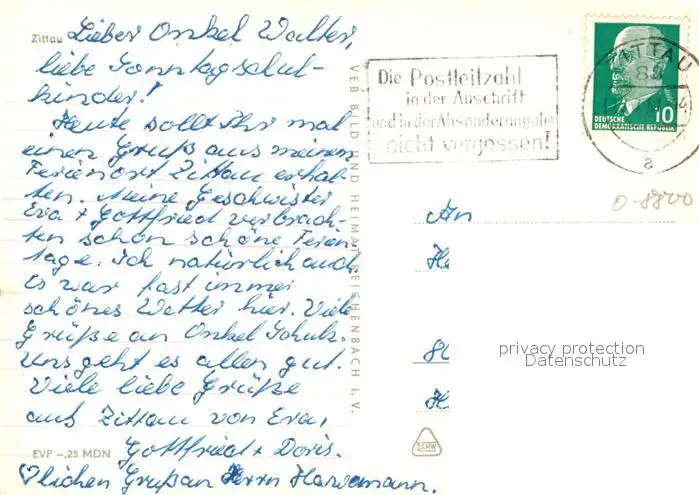 Zittau
Lieber Onkel Walter,
liebe Sonntagschul-
kinder!
Heute sollt Ihr mal
einen Gruß aus meinem
Ferienort Zittau erhal-
ten. Meine Geschwister
Eva + Gottfried verbrach-
ten schon schöne Ferien-
tage. Ich natürlich auch.
Es war fast immer
schönes Wetter hier. Viele
Grüße an Onkel Schulz.
Uns geht es allen gut.
Viele liebe Grüße
aus Zittau von Eva,
Gottfried + Doris.
♡lichen Gruß an Herrn
EVP -,25 MDN
VEB BILD UND HEIMAT REICHENBACH I. V.
Die Postleitzahl
in der Anschrift
und in der Absenderangabe
nicht vergessen!
ZITTAU
88
a
10
DEUTSCHE
DEMOKRATISCHE REPUBLIK
0-8800
An
privacy protection
Datenschutz